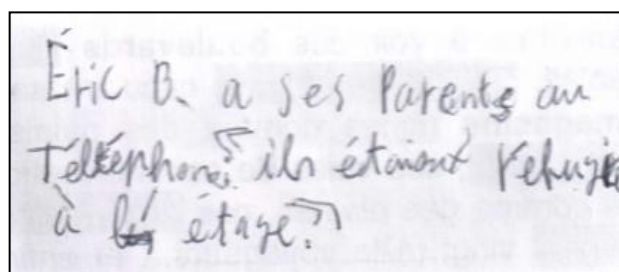 Éric B. a ses Parents au
Téléphone: « ils étaient réfugié
à l' étage. »